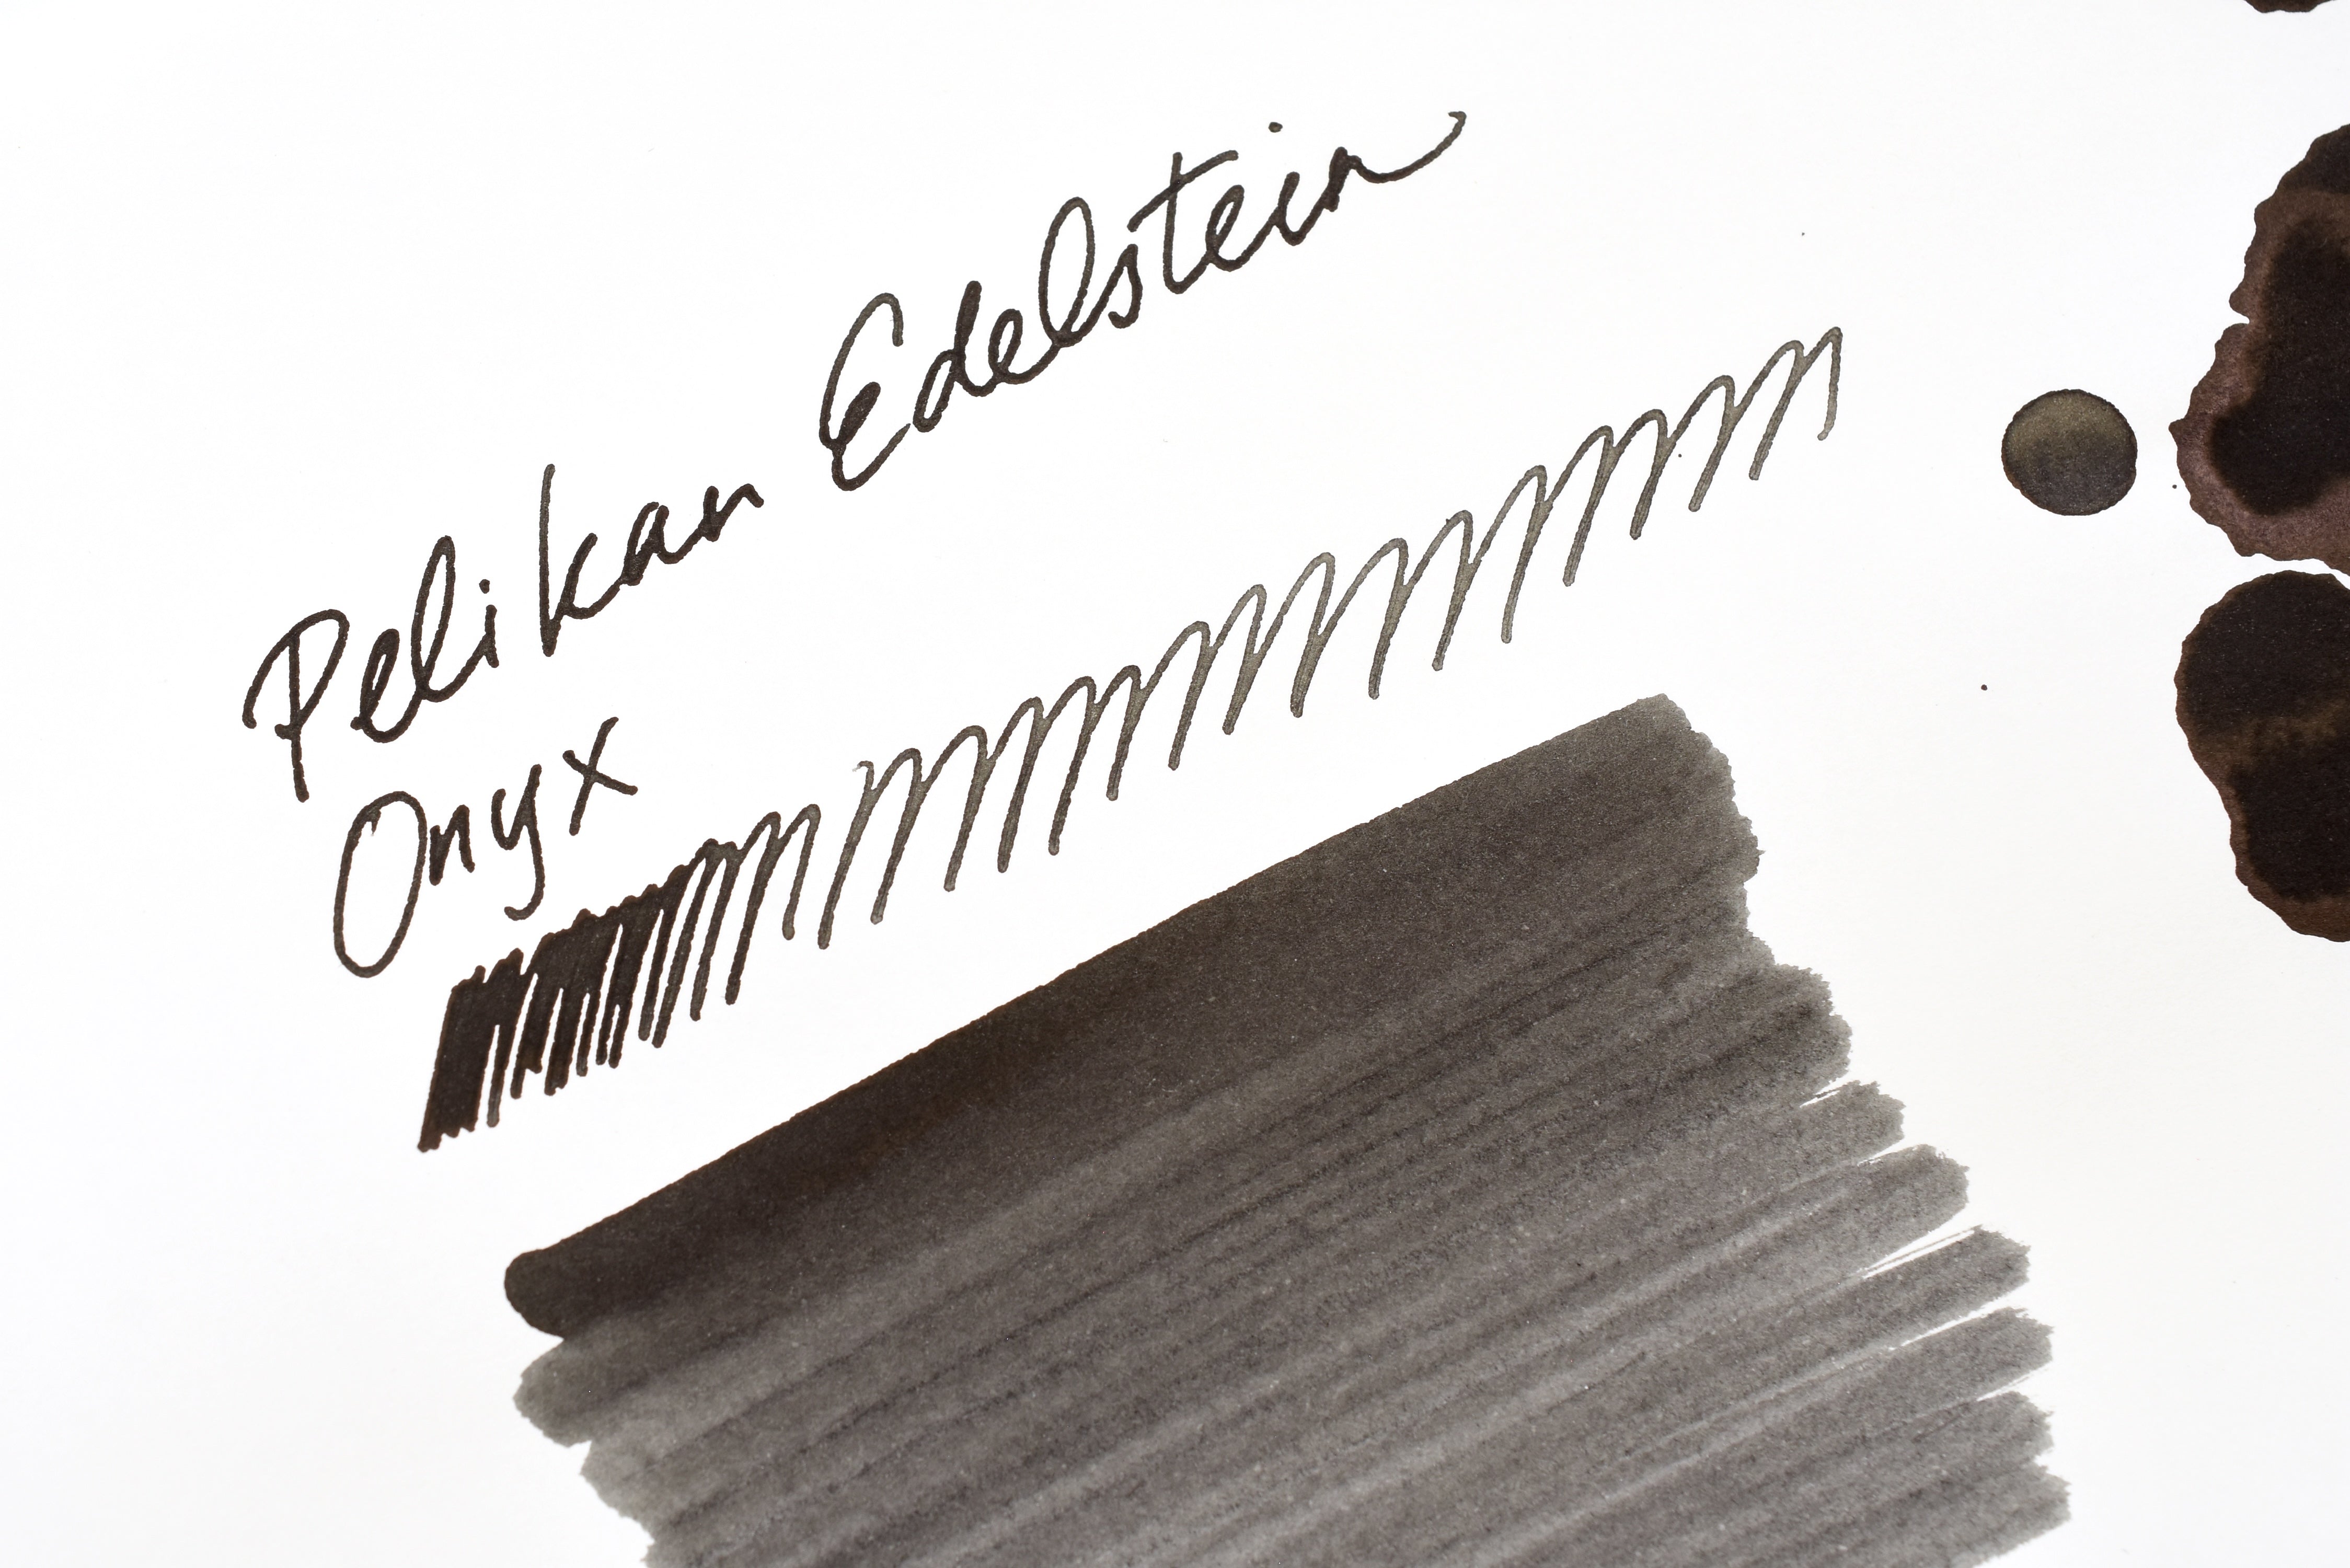 Pelikan Edelstein
Onyx